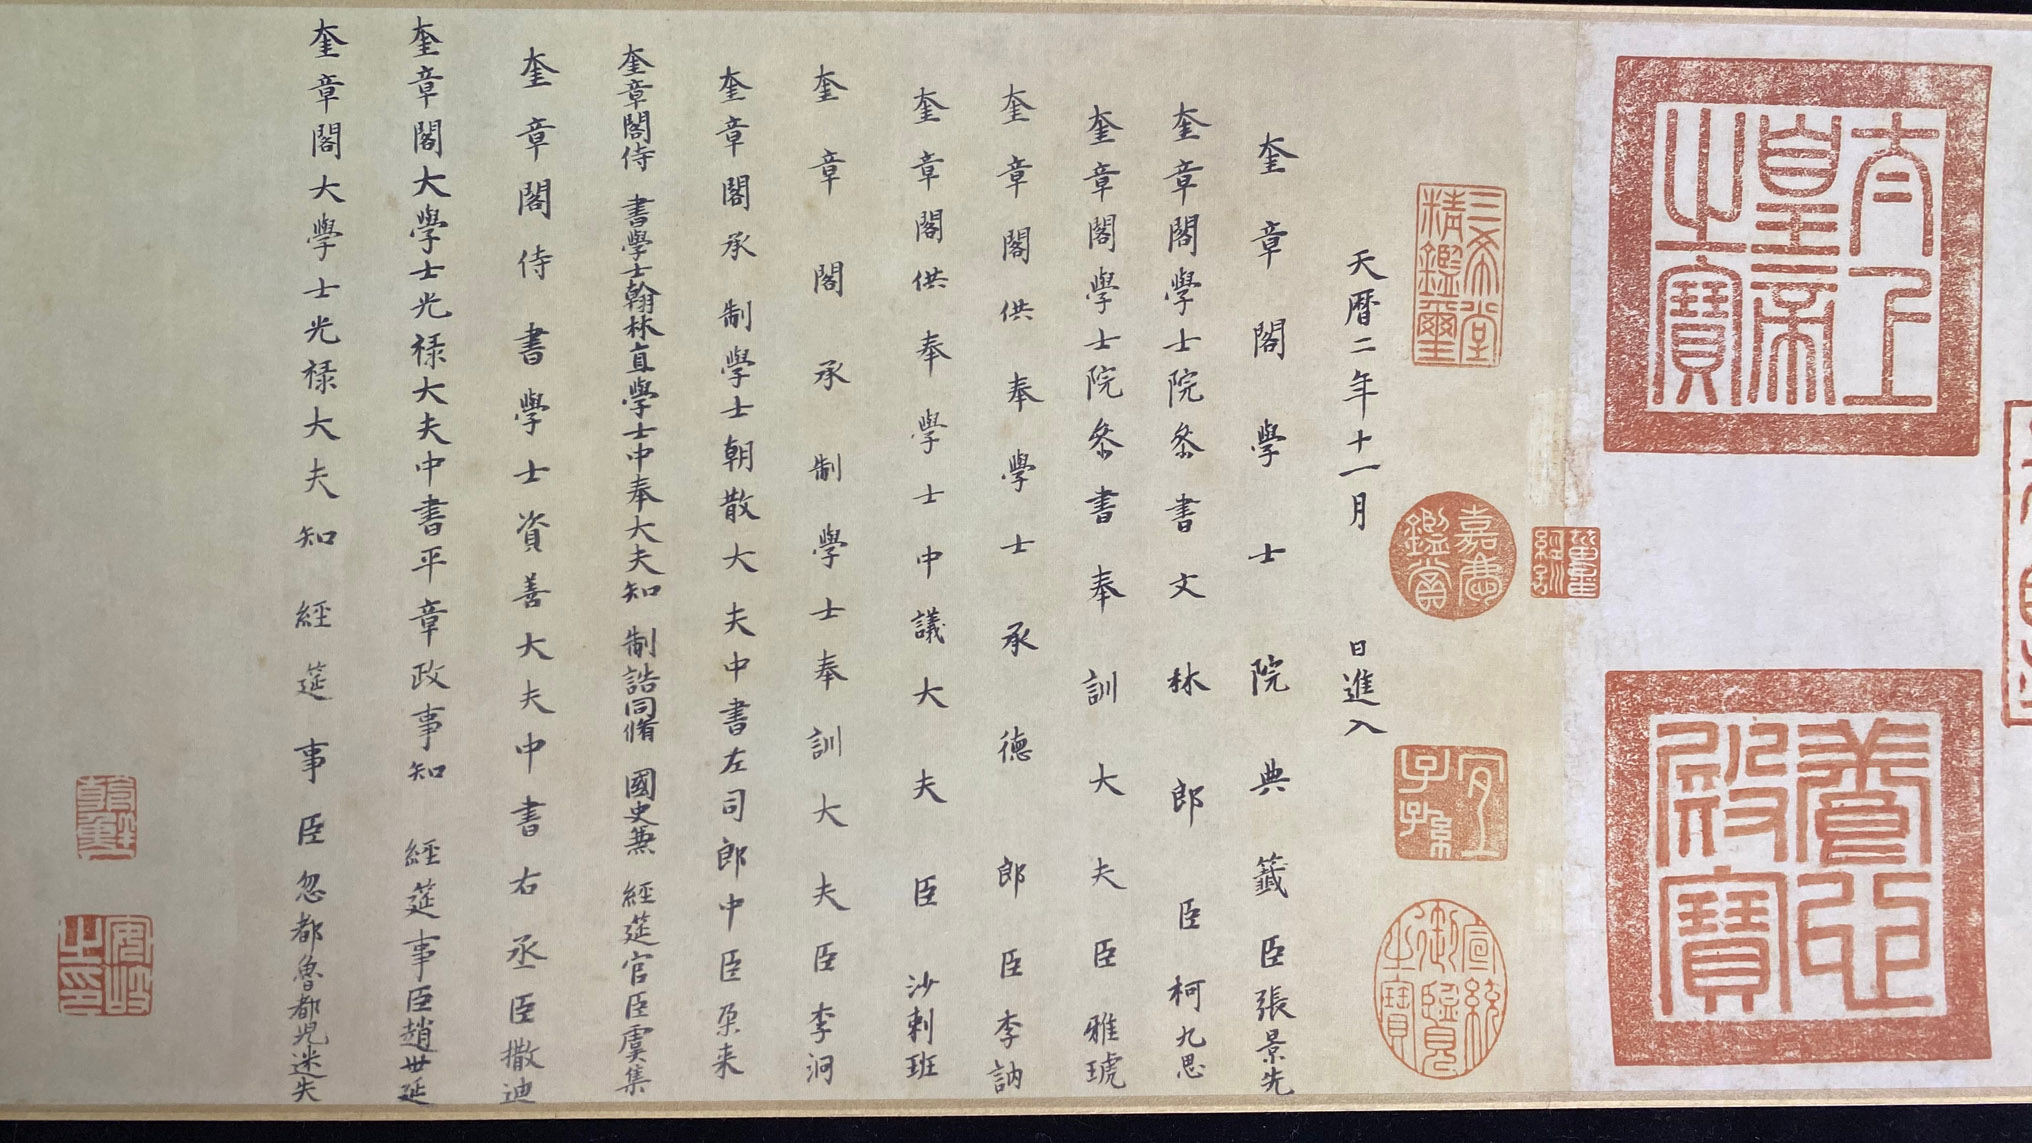 太上皇帝之寶
養心殿寶
三希堂精鑑璽
嘉慶鑑賞
宜子孫
宣統御覽之寶
天曆二年十一月 日進入
奎章閣學士院典籤臣張景先
奎章閣學士院叅書文林郎臣柯九思
奎章閣學士院叅書奉訓大夫臣雅琥
奎章閣供奉學士承德郎臣李訥
奎章閣供奉學士中議大夫臣沙剌班
奎章閣承制學士奉訓大夫臣李泂
奎章閣承制學士朝散大夫中書左司郎中臣朶来
奎章閣侍書學士翰林直學士中奉大夫知制誥同脩國史兼經筵官臣虞集
奎章閣侍書學士資善大夫中書右丞臣撒迪
奎章閣大學士光禄大夫中書平章政事知經筵事臣趙世延
奎章閣大學士光禄大夫知經筵事臣忽都魯都兒迷失
安岐之印